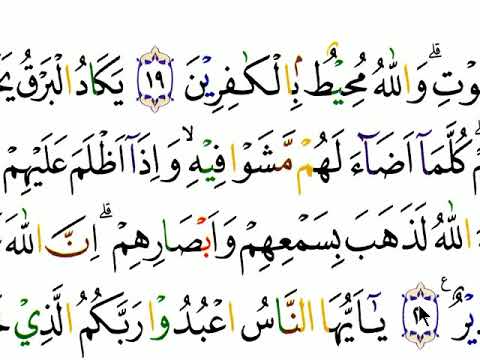 وْتِ ؕ وَاللّٰهُ مُحِيْطٌۢ بِالْكٰفِرِيْنَ ۝١٩ يَكَادُ الْبَرْقُ يَخْ
كُلَّمَاۤ اَضَآءَ لَهُمْ مَّشَوْا فِيْهِ ۙ وَاِذَاۤ اَظْلَمَ عَلَيْهِمْ
اللّٰهُ لَذَهَبَ بِسَمْعِهِمْ وَاَبْصَارِهِمْ ؕ اِنَّ اللّٰهَ
دِيْرٌ يٰۤاَيُّهَا النَّاسُ اعْبُدُوْا رَبَّكُمُ الَّذِيْ